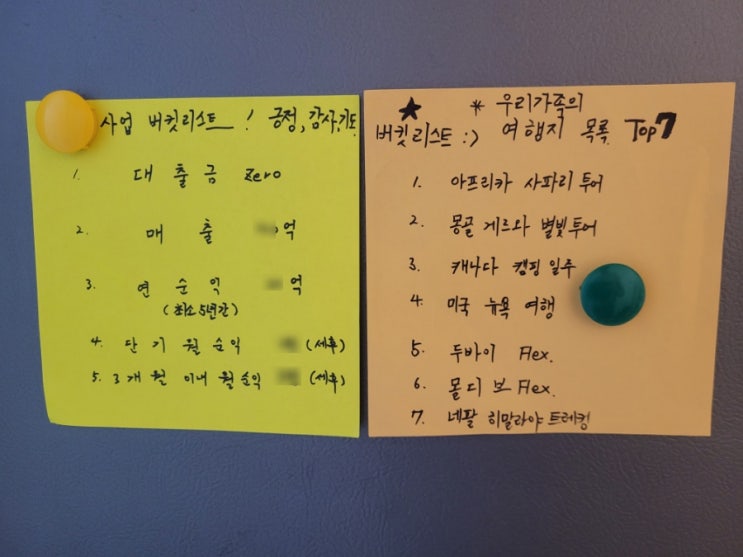 사업 버킷리스트 ! 긍정, 감사, 기도
1. 대출금 Zero
2. 매출 억
3. 연 순익 억
(최소 5년간)
4. 단기 월 순익 (세후)
5. 3개월 이내 월 순익 (세후)
★ * 우리가족의
버킷리스트 :) 여행지 목록 Top 7
1. 아프리카 사파리 투어
2. 몽골 게르와 별빛투어
3. 캐나다 캠핑 일주
4. 미국 뉴욕 여행
5. 두바이 Flex.
6. 몰디브 Flex.
7. 네팔 히말라야 트레킹